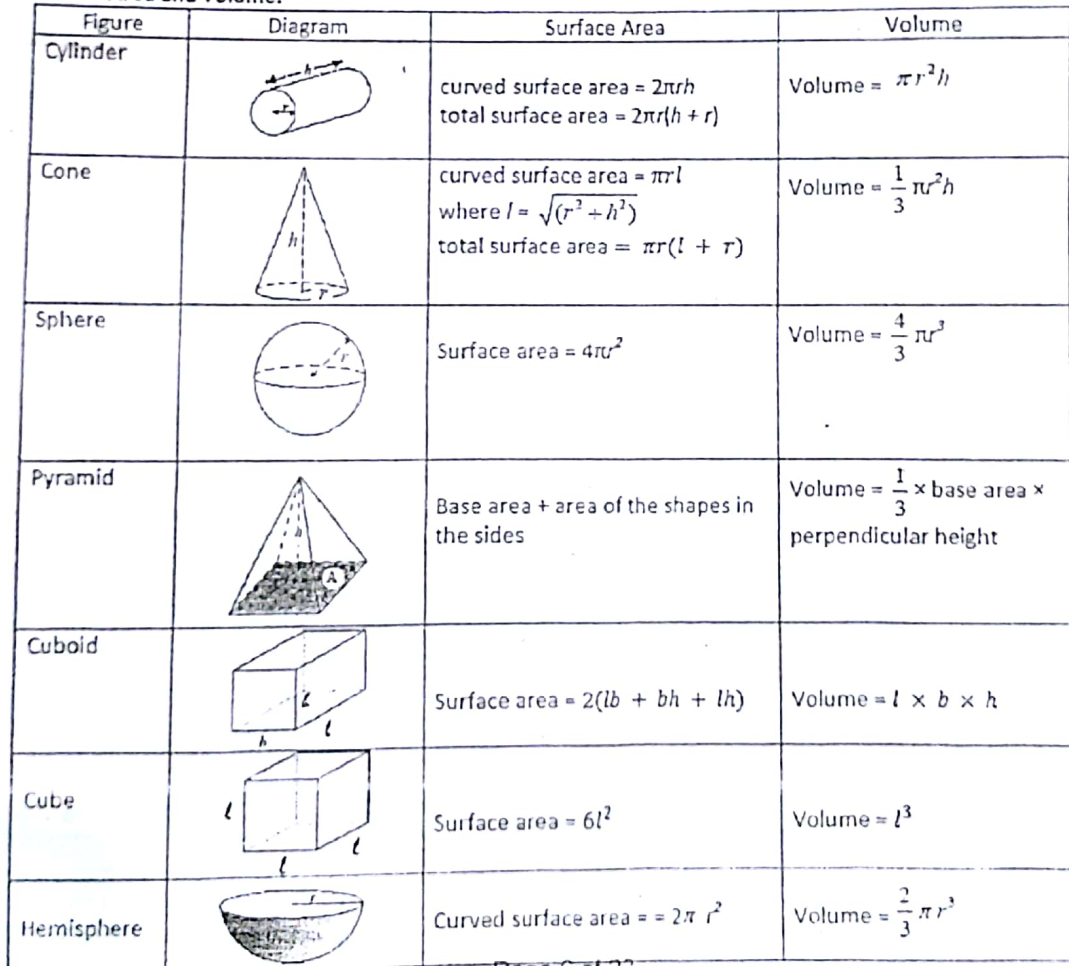 Figure Diagram Surface Area Volume
Cylinder
h
r
curved surface area = 2πrh
total surface area = 2πr(h + r)
Volume = πr²h
Cone
h
r
curved surface area = πrl
where l = √(r² + h²)
total surface area = πr(l + r)
Volume = 1/3 πr²h
Sphere
r
Surface area = 4πr²
Volume = 4/3 πr³
Pyramid
h
A
Base area + area of the shapes in
the sides
Volume = 1/3 × base area ×
perpendicular height
Cuboid
l
Surface area = 2(lb + bh + lh)
Volume = l × b × h
Cube
l
l
l
Surface area = 6l²
Volume = l³
Hemisphere
r
Curved surface area = = 2π r²
Volume = 2/3 π r³